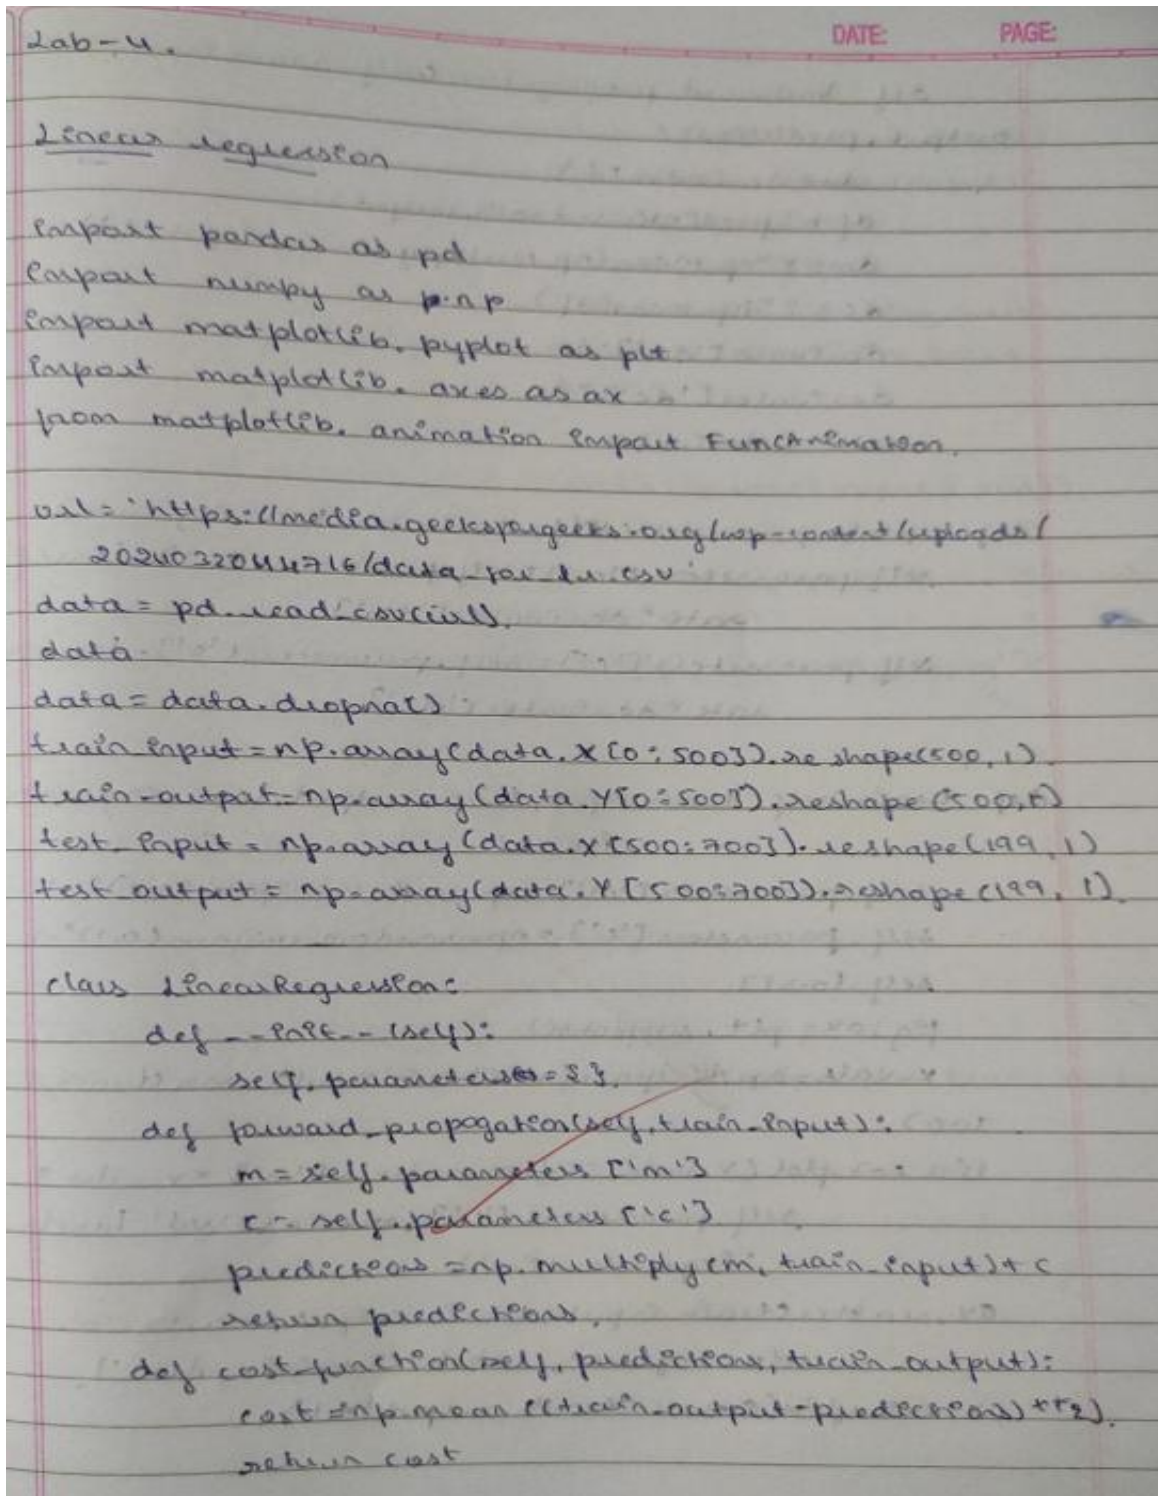 DATE: PAGE:
Lab-4.
Linear regression
import pandas as pd
import numpy as np
import matplotlib.pyplot as plt
import matplotlib.axes as ax
from matplotlib.animation import FuncAnimation.
url='https://media.geeksforgeeks.org/wp-content/uploads/
20240320114716/data_for_lr.csv'
data = pd.read_csv(url).
data
data = data.dropna()
train input = np.array(data.X[0:500]).reshape(500,1).
train-output = np.array(data.Y[0:500]).reshape(500,1)
test_input = np.array(data.X[500:700]).reshape(199,1)
test_output = np.array(data.Y[500:700]).reshape(199,1).
class LinearRegression:
def __init__(self):
self.parameters = {}.
def forward_propogation(self,train_input):
m = self.parameters['m']
c = self.parameters['c']
predictions = np.multiply(m, train_input) + c
return predictions.
def cost_function(self, predictions, train_output):
cost = np.mean((train_output-predictions)**2).
return cost